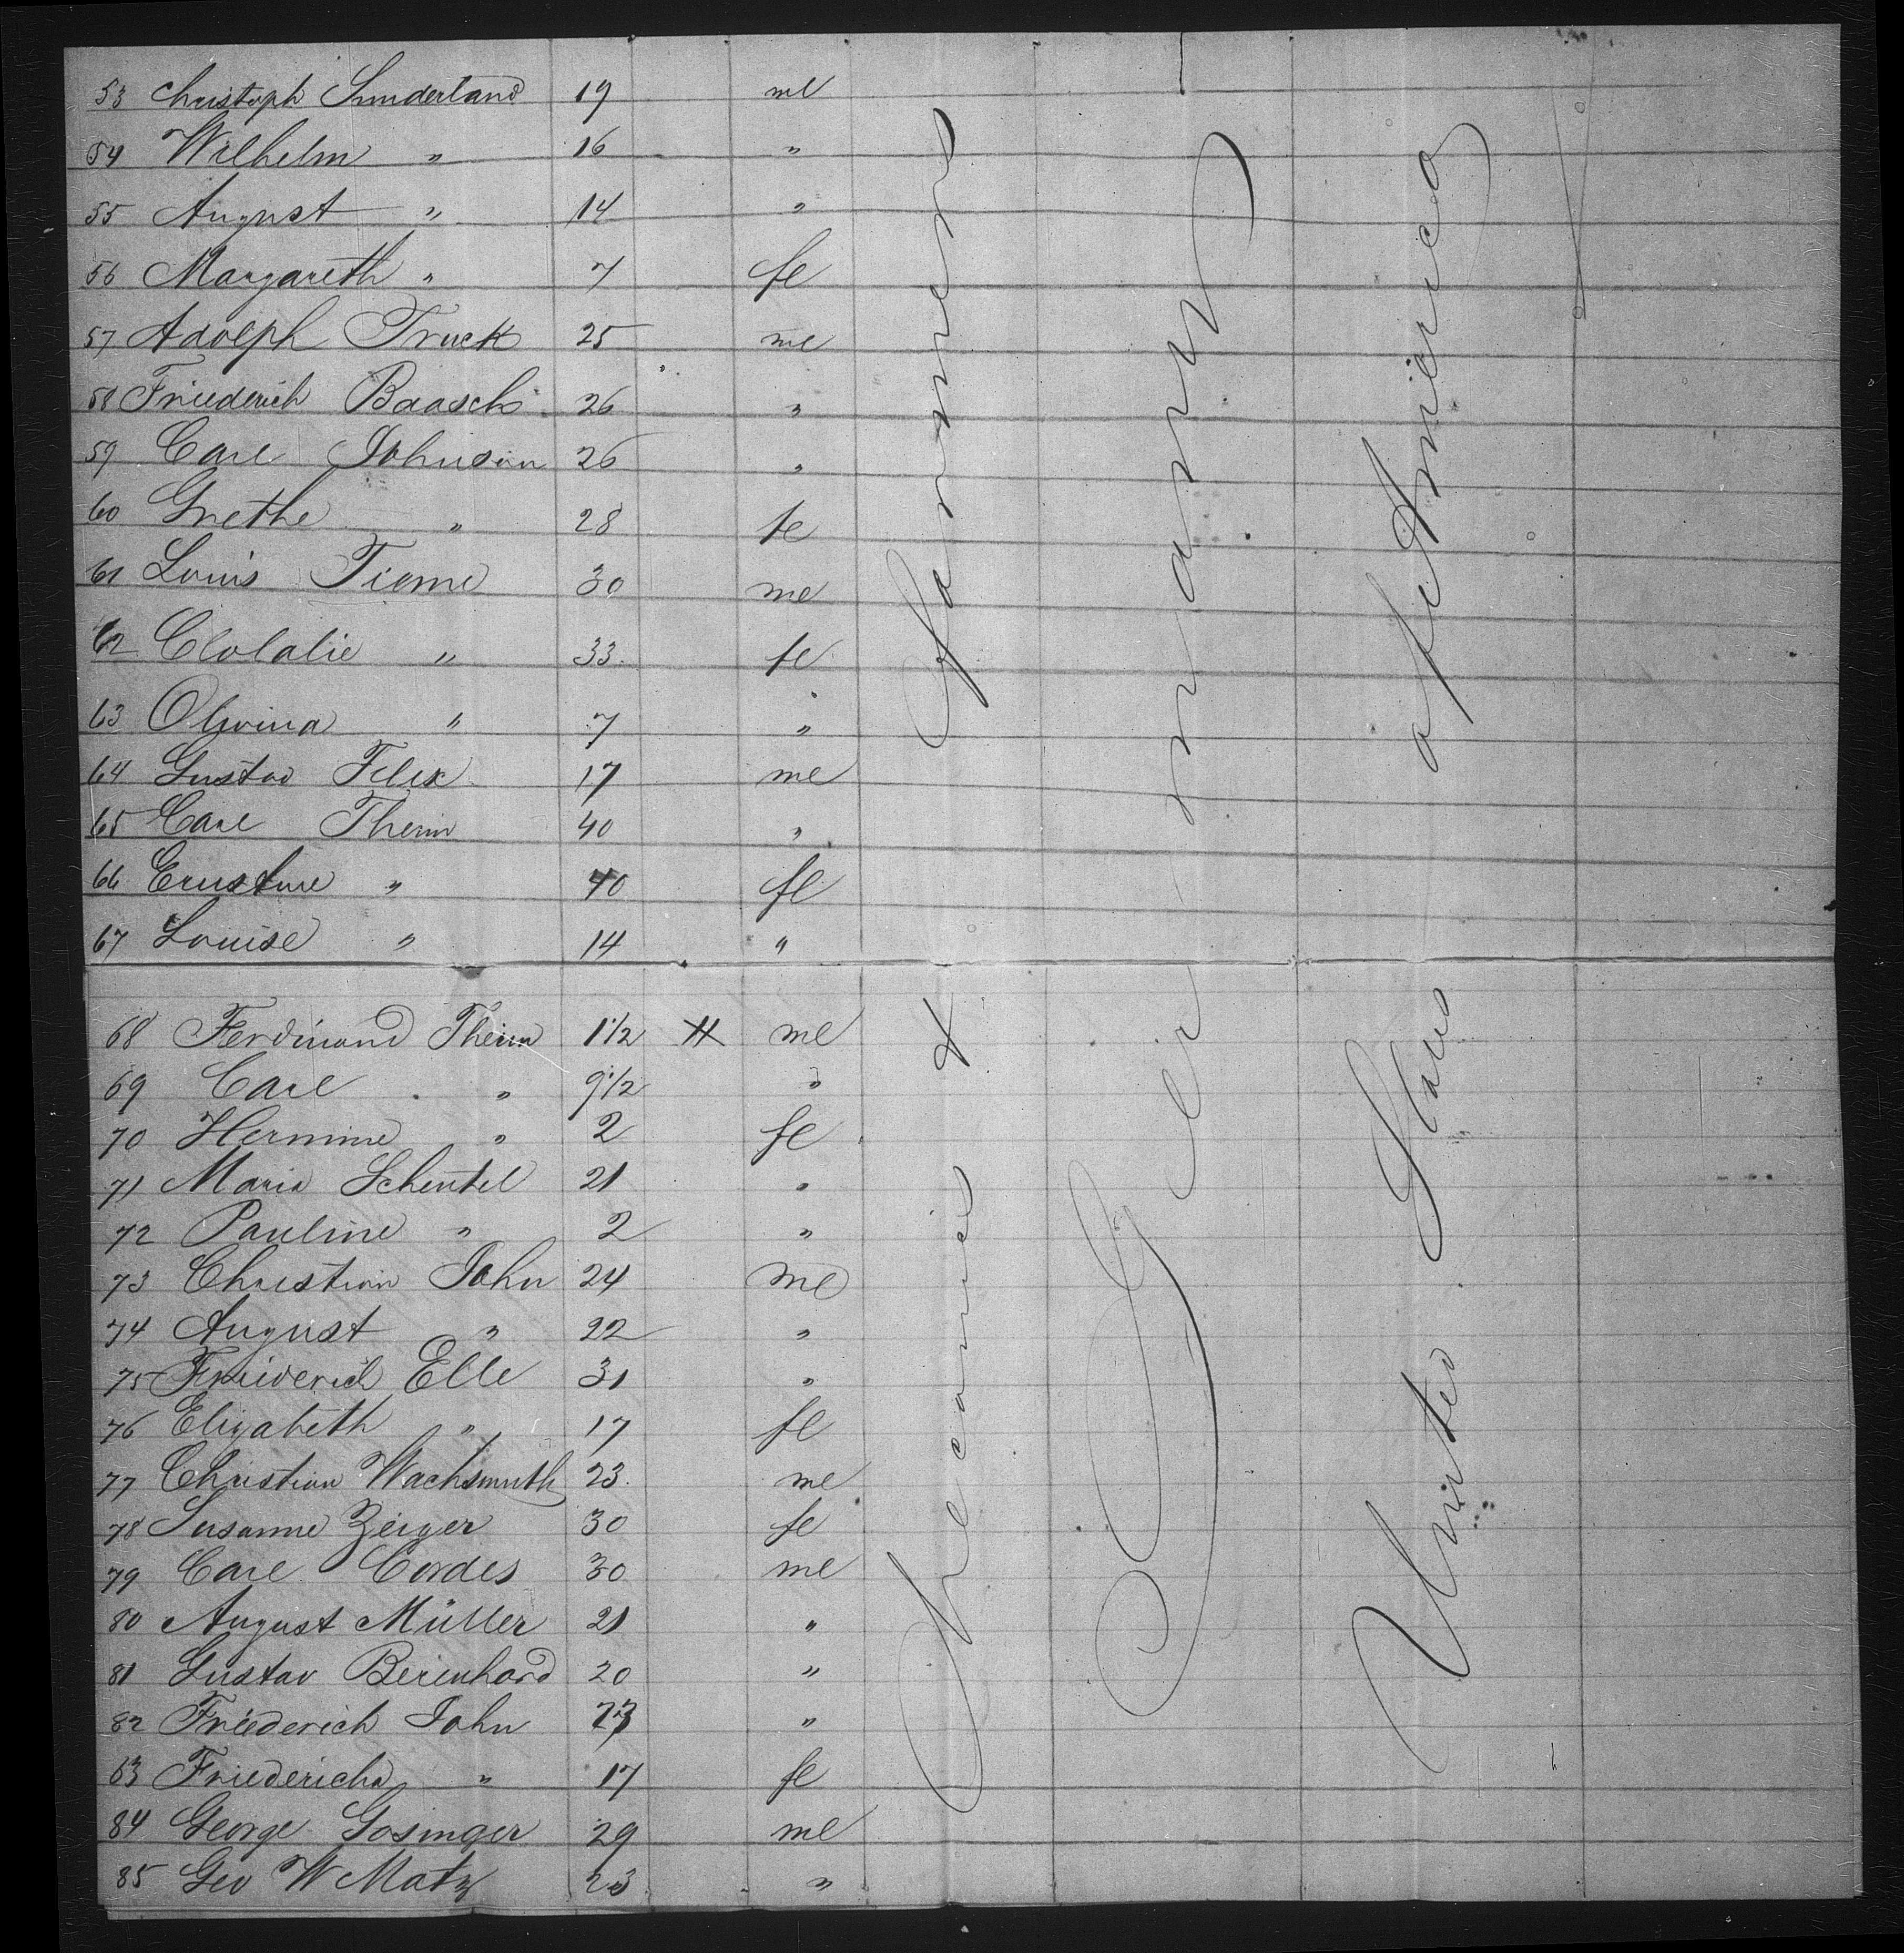 53 Christoph Sunderland 19 ml
54 Wilhelm " 16 "
55 August " 14 "
56 Margareth " 7 fe
57 Adolph Truck 25 me
58 Friederich Baasch 26 "
59 Carl Johnson 26 "
60 Grethe " 28 fe
61 Louis Tieme 30 me
62 " 33 fe
63 Olwina " 7 "
64 Gustav Felix 17 me
65 Carl Theim 40 "
66 " 40 fe
67 Louise " 14 "
68 Ferdinand Theim 11/2 me
69 Carl " 91/2 "
70 Hermine " 2 fe
71 Maria Scheutel 21 "
72 Pauline " 2 "
73 Christian John 24 me
74 August " 22 "
75 Friederich Elle 31 "
76 Elizabeth " 17 fe
77 Christian Wachsmuth 23 me
78 Susanne Zeiger 30 fe
79 Carl Cordes 30 me
80 August Müller 21 "
81 Gustav Berenhard 20 "
82 Friederich John 23 "
83 Friedericha " 17 fe
84 George Gosinger 29 me
85 Geo W Matz 23 "
Mecanic & Farmers
Germany
United States of America